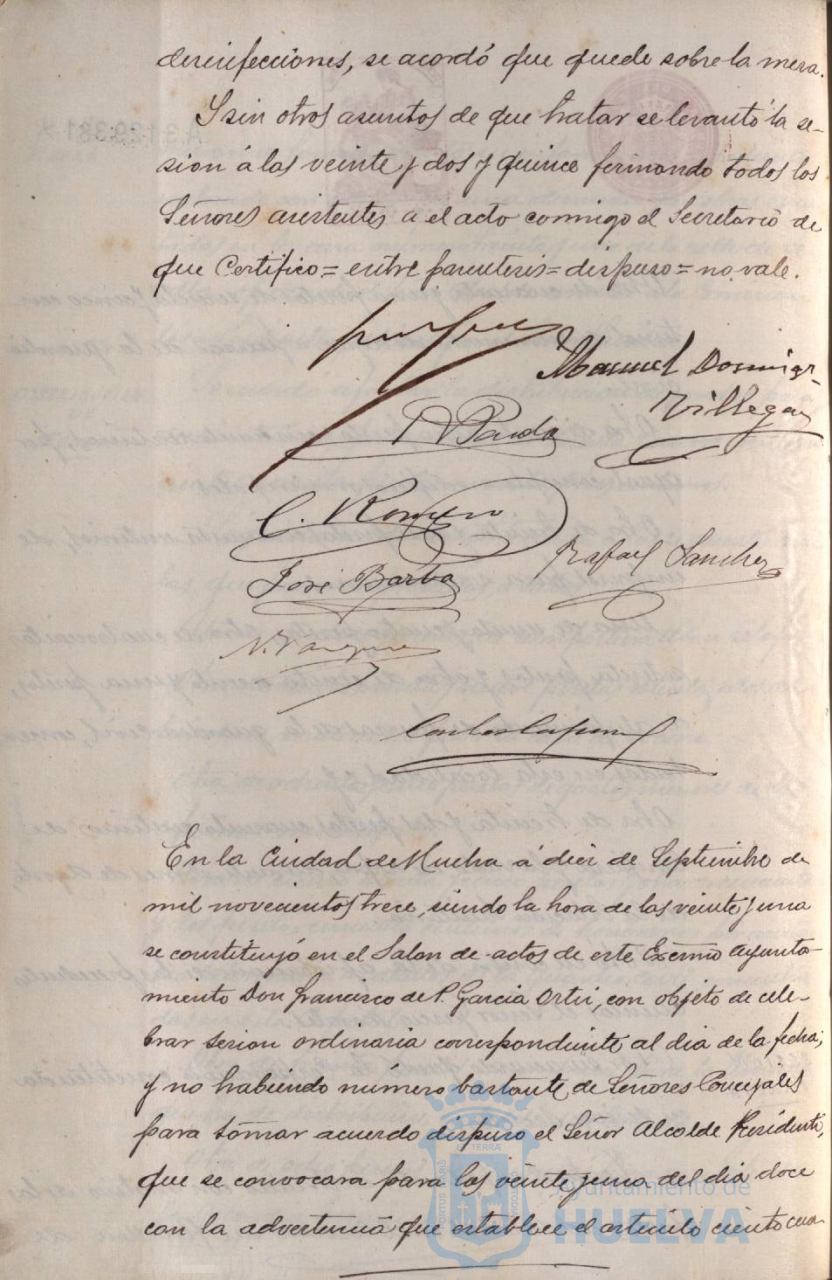 desinfecciones, se acordó que quede sobre la mesa.
Y sin otros asuntos de que tratar se levantó la se-
sion á las veinte y dos y quince firmando todos los
Señores asistentes a el acto conmigo el Secretario de
que Certifico = entre parentesis = dispuso = no vale.
Manuel Domingz
Villegas
Parda
C. Romero
Rafael Sanchez
José Barba
N. Vazquez
Carlos
En la Ciudad de Huelva á diez de Septiembre de
mil novecientos trece, siendo la hora de las veinte y una
se constituyó en el Salon de actos de este Excmo Ayunta-
miento Don Francisco de P. García Ortiz, con objeto de cele-
brar sesion ordinaria correspondiente al dia de la fecha;
y no habiendo número bastante de Señores Concejales
para tomar acuerdo dispuso el Señor Alcalde Presidente,
que se convocara para las veinte y una del dia doce
con la advertencia que establece el artículo ciento cua-
Ayuntamiento de
HUELVA